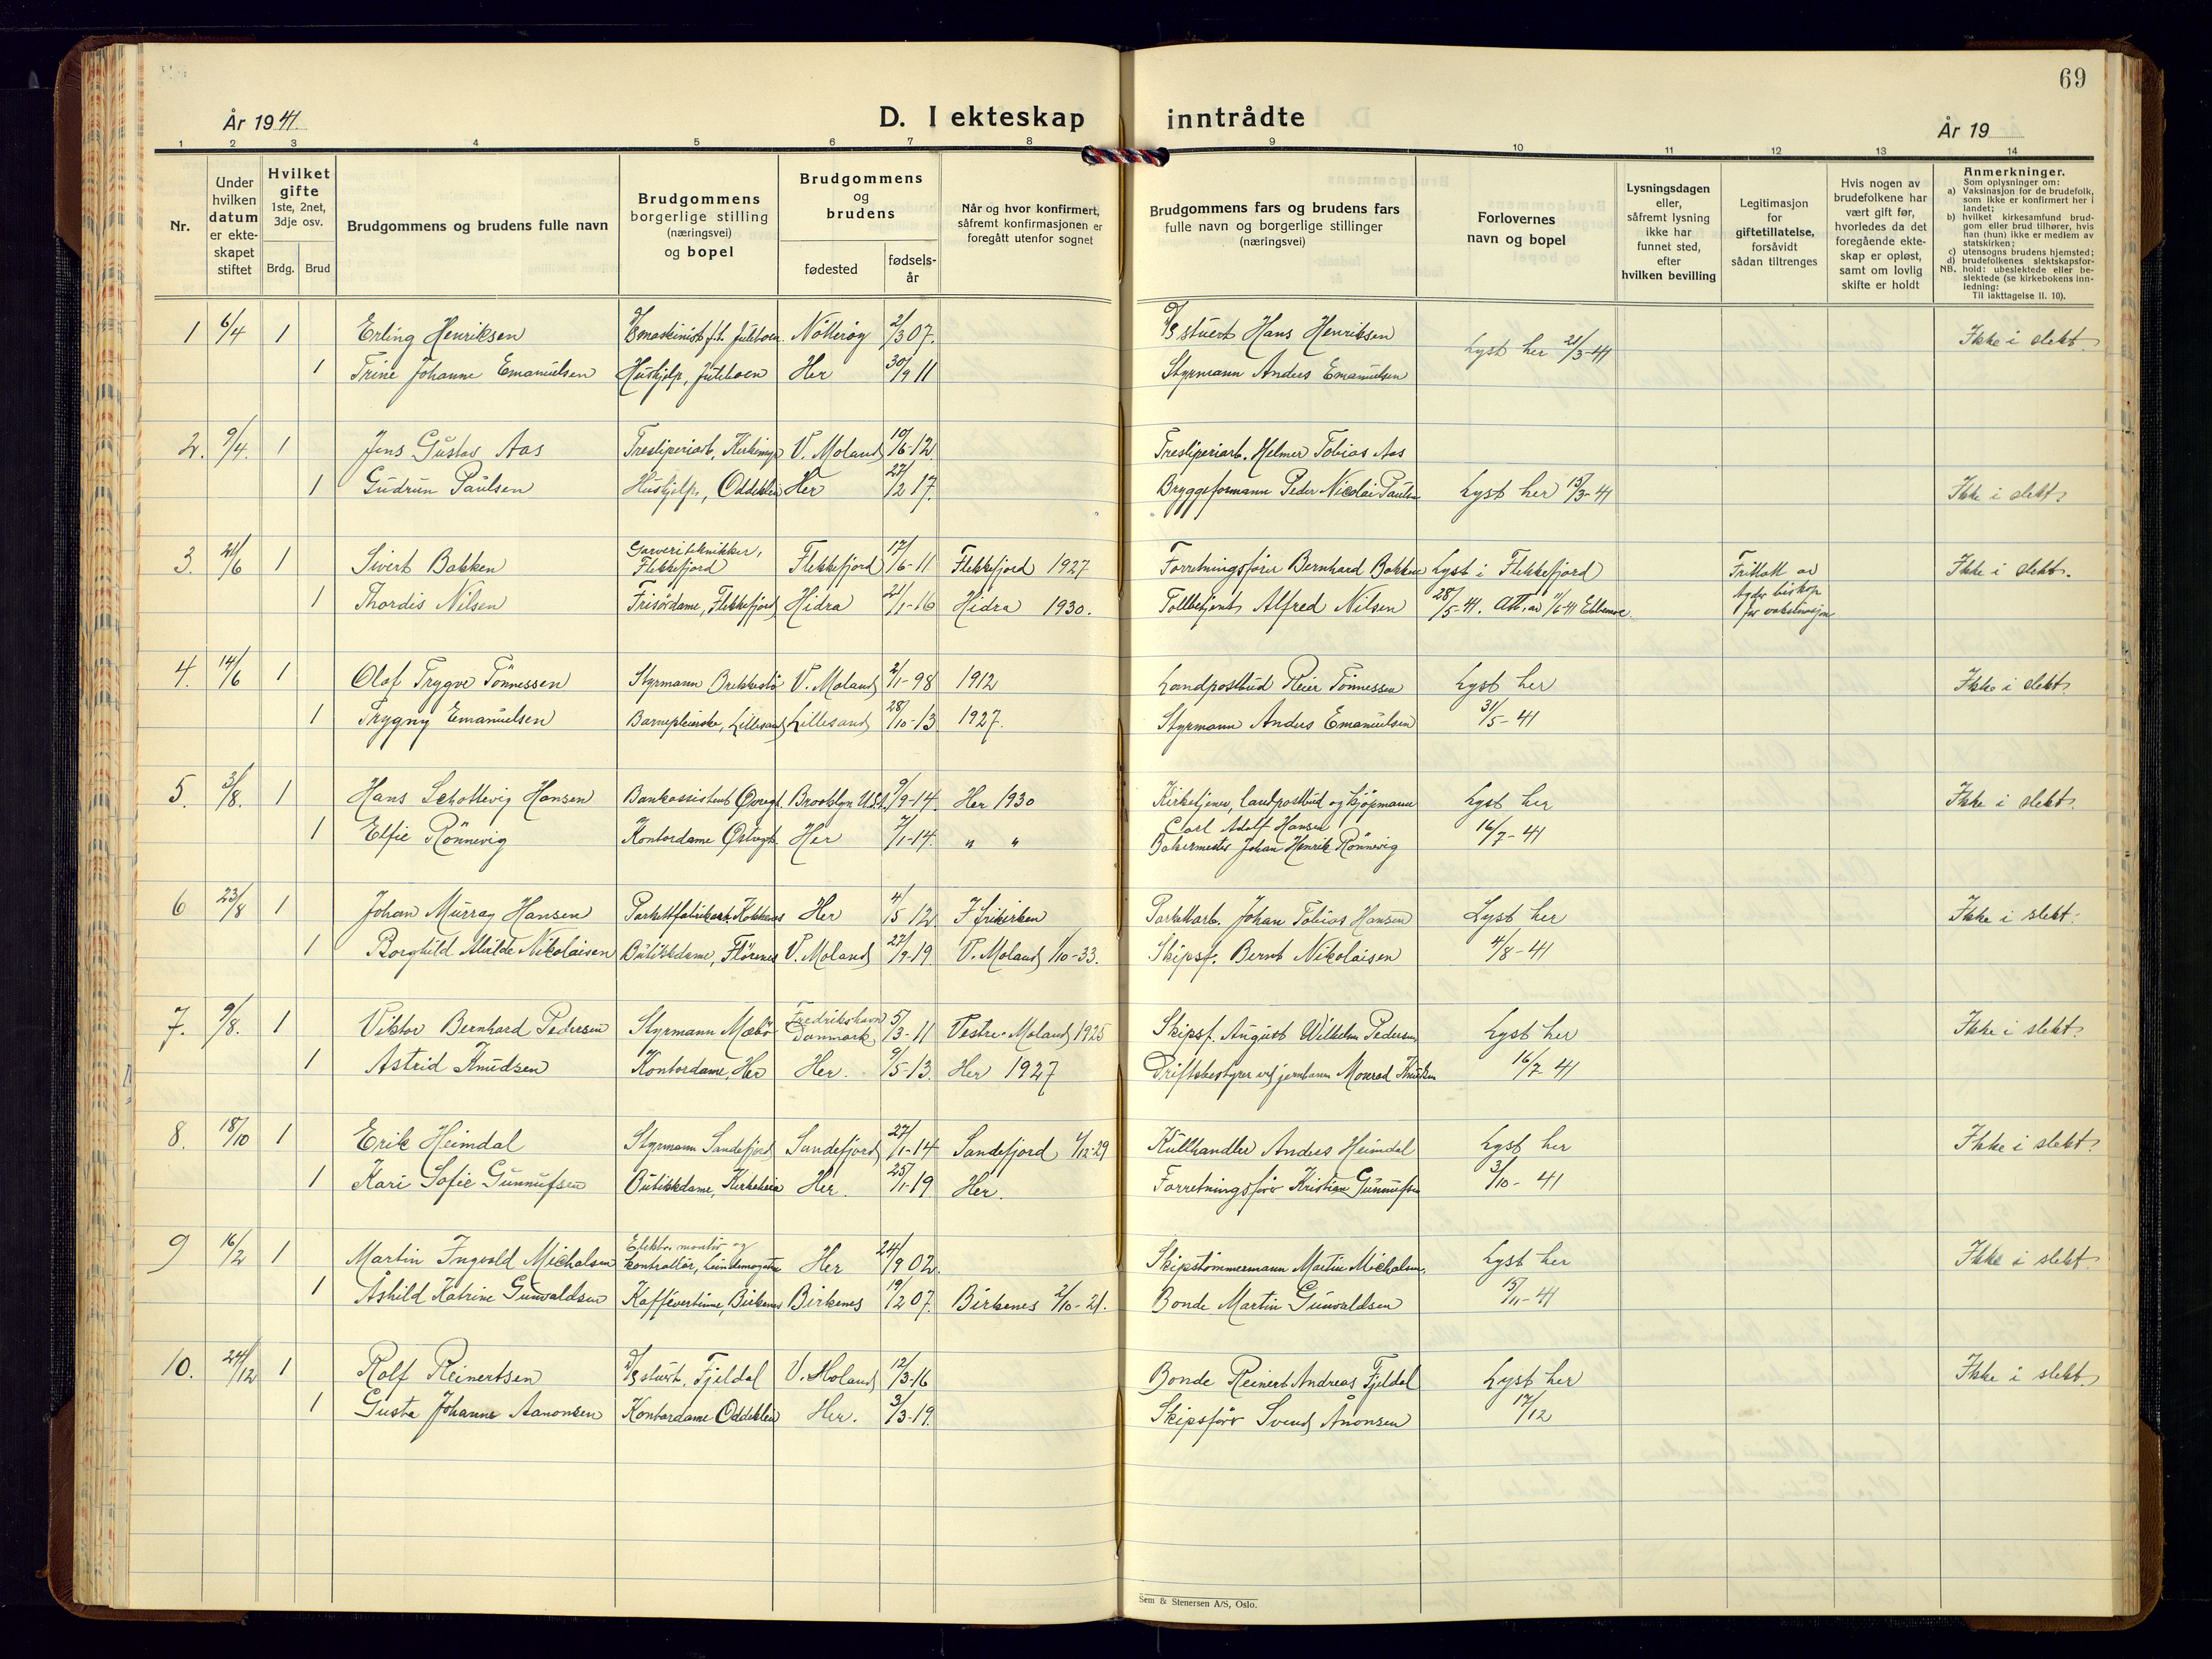 69
År 1941.
D. I ekteskap inntrådte
År 19
1 2 3 4 5 6 7 8 9 10 11 12 13 14
Nr.
Under hvilken datum er ekte- skapet stiftet
Hvilket gifte 1ste, 2net, 3dje osv.
Brdg. Brud
Brudgommens og brudens fulle navn
Brudgommens borgerlige stilling (næringsvei) og bopel
Brudgommens og brudens
fødested
fødsels- år
Når og hvor konfirmert, såfremt konfirmasjonen er foregått utenfor sognet
Brudgommens fars og brudens fars fulle navn og borgerlige stillinger (næringsvei)
Forlovernes navn og bopel
Lysningsdagen eller, såfremt lysning ikke har funnet sted, efter hvilken bevilling
Legitimasjon for giftetillatelse, forsåvidt sådan tiltrenges
Hvis nogen av brudefolkene har vært gift før, hvorledes da det foregående ekte- skap er opløst, samt om lovlig skifte er holdt
Anmerkninger.
Som oplysninger om:
a) Vaksinasjon for de brudefolk, som ikke er konfirmert her i landet;
b) hvilket kirkesamfund brud- gom eller brud tilhører, hvis han (hun) ikke er medlem av statskirken;
c) utensogns brudens hjemsted;
d) brudefolkenes slektskapsfor-
NB. hold: ubeslektede eller be- slektede (se kirkebokens inn- ledning:
Til iakttagelse II. 10).
1 6/4 1 Erling Henriksen Nøtterøy 2/3 07. D/S stuert Hans Henriksen Lyst her 21/3-41 Ikke i slekt.
1 Trine Johanne Emanuelsen Hushjelp, Her 30/9 11 Styrmann Anders Emanuelsen
2. 9/4. 1 Jens Gustav Aas V. Moland 10/6-12 Tresliperiarb. Helmer Tobias Aas
1 Gudrun Paulsen Hushjelp, Oddeklev Her 27/2 17. Bryggeformann Peder Nicolai Paulsen Lyst her 15/3-41 Ikke i slekt.
3. 21/6 1 Sivert Bakken Garveritekniker, Flekkefjord Flekkefjord 17/6-11 Flekkefjord 1927 Forretningsfører Bernhard Bakken Lyst i Flekkefjord Fritatt av Ikke i slekt.
1 Thordis Nilsen Frisørdame, Flekkefjord Hidra 21/1-16 Hidra 1930. Tollbetjent Alfred Nilsen 28/5-41. Att. av Agder biskop for vaksinasjon
4. 14/6 1 Olaf Trygve Tönnessen Styrmann Brekkestø V. Moland 2/11-98 1912 Landpostbud Reier Tönnessen Lyst her Ikke i slekt.
1 Trygny Emanuelsen Barnepleierske, Lillesand Lillesand 28/10-13 1927. Styrmann Anders Emanuelsen 31/5-41
5. 3/8. 1 Hans Schottevig Hansen Bankassistent Brooklyn U.S.A. 9/9-14. Her 1930 Kirketjener, landpostbud og kjøpmann Lyst her Ikke i slekt.
Carl Adolf Hansen
1 Elfie Rönnevig Kontordame Her 7/1-14. " " Bakermester Johan Henrik Rönnevig 16/7-41
6 23/8 1 Johan Murray Hansen Her 4/5 12 I frikirken Parkettarb. Johan Tobias Hansen Lyst her Ikke i slekt.
1 Borghild Alvilde Nikolaisen Butikkdame, V. Moland 27/9-19. V. Moland 1/10-33. Skipsf. Bernt Nikolaisen 4/8-41
7. 9/8. 1 Viktor Bernhard Pedersen Styrmann Fredrikshavn Danmark 5/3-11 Vestre-Moland 1925 Skipsf. August Wilhelm Pedersen Lyst her Ikke i slekt.
1 Astrid Knudsen Kontordame, Her Her. 9/5-13. Her 1927 Driftsbestyrer ved jernbanen Monrad Knudsen 16/7-41
8. 18/10 1 Erik Heimdal Styrmann Sandefjord Sandefjord 27/1-14 Sandefjord 1/12-29 Kullhandler Anders Heimdal Lyst her Ikke i slekt.
1 Kari Sofie Gunnufsen Butikkdame, Kirkeheia Her. 25/1-19 Her. Forretningsfører Kristian Gunnufsen 3/10-41
9 16/2 1 Martin Ingvald Michalsen Elektr. montør og kontrollør, Her 24/9 02. Skipstömmermann Martin Michalsen. Lyst her Ikke i slekt.
1 Åshild Katrine Gunvaldsen Kaffevertinne, Birkenes Birkenes 19/2 07. Birkenes 2/10-21. Bonde Martin Gunvaldsen 15/11-41
10. 24/12 1 Rolf Reinertsen D/S stuert, Fjeldal V. Moland 12/3-16 Bonde Reinert Andreas Fjeldal Lyst her Ikke i slekt.
1 Gusta Johanne Aanonsen Kontordame Oddeklev Her. 3/3-19. Skipsfører Svend Ånonsen 17/12
Sem & Stenersen A/S, Oslo.